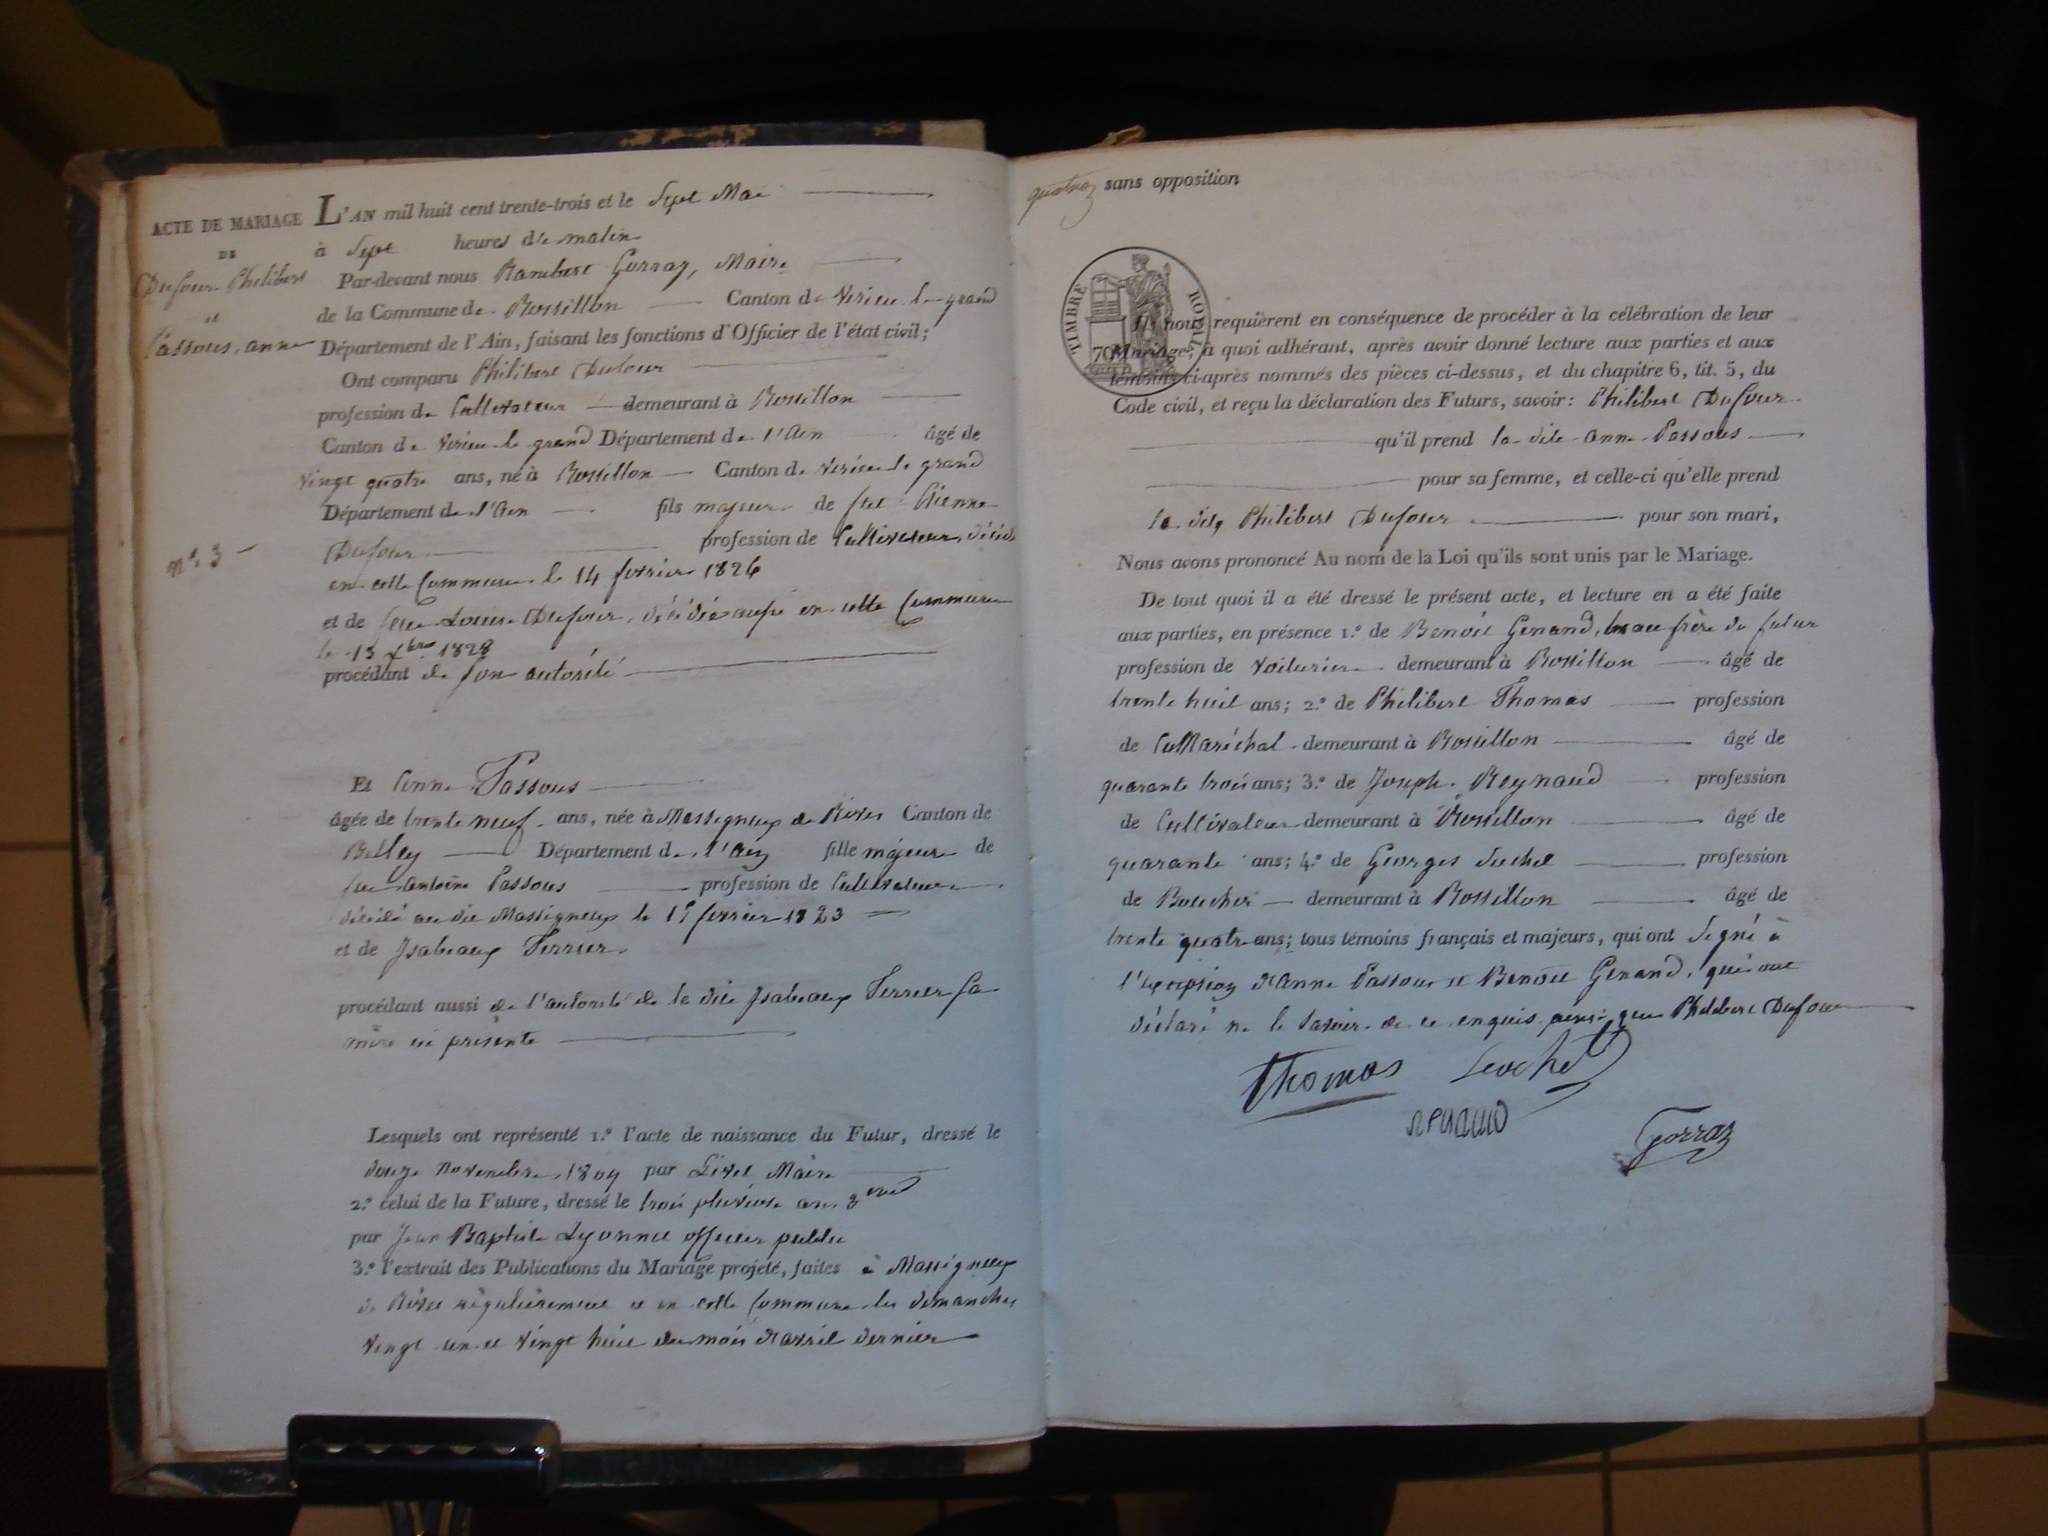 ACTE DE MARIAGE
DE
Dufour Philibert
et
Passous, anne
n.° 3
L'AN mil huit cent trente-trois et le Sept Mai
à Sept heures du matin
Par-devant nous Rambert Gorraz, Maire
de la Commune de Rossillon Canton de Virieu le grand
Département de l'Ain, faisant les fonctions d'Officier de l'état civil;
Ont comparu Philibert Dufour
profession de Cultivateur demeurant à Rossillon
Canton de Virieu le grand Département de l'Ain âgé de
vingt quatre ans, né à Rossillon Canton de Virieu le grand
Département de l'Ain fils majeur de feu Etienne
Dufour profession de Cultivateur, décédé
en cette Commune le 14 fevrier 1826
et de feue Louise Dufour, décédée aussi en cette Commune
le 13 1828
procédant de son autorité
Et Anne Passous
âgée de trente neuf ans, née à Massigneux de Rives Canton de
Belley Département de l'Ain fille majeure de
feu Antoine Passous profession de Cultivateur
décédé au dit Massigneux le fevrier 1823
et de Isabeaux Ferrier
procédant aussi de l'autorité de la dite Isabeaux Ferrier sa
mère ici présente
Lesquels ont représenté 1.° l'acte de naissance du Futur, dressé le
douze novembre 1809 par Livet Maire
2.° celui de la Future, dressé le trois pluviose an
par Jean Baptiste Lyonnet officier public
3.° l'extrait des Publications du Mariage projeté, faites à Massigneux
de Rives régulièrement et en cette Commune les dimanches
vingt un et vingt huit du mois d'avril dernier
quatre sans opposition
TIMBRE ROYAL
70
Ils nous requièrent en conséquence de procéder à la célébration de leur
Mariage; à quoi adhérant, après avoir donné lecture aux parties et aux
témoins ci-après nommés des pièces ci-dessus, et du chapitre 6, tit. 5, du
Code civil, et reçu la déclaration des Futurs, savoir: Philibert Dufour
qu'il prend la dite anne Passous
pour sa femme, et celle-ci qu'elle prend
le dit Philibert Dufour pour son mari,
Nous avons prononcé Au nom de la Loi qu'ils sont unis par le Mariage.
De tout quoi il a été dressé le présent acte, et lecture en a été faite
aux parties, en présence 1.° de Benoit Genand, beau frère du futur
profession de voiturier demeurant à Rossillon âgé de
trente huit ans; 2.° de Philibert Thomas profession
de Maréchal demeurant à Rossillon âgé de
quarante trois ans; 3.° de Joseph Reynaud profession
de Cultivateur demeurant à Rossillon âgé de
quarante ans; 4.° de Georges profession
de Boucher demeurant à Rossillon âgé de
trente quatre ans; tous témoins français et majeurs, qui ont Signé à
l'exception d'Anne Passous et Benoit Genand, qui ont
déclaré ne le savoir de ce enquis ainsi que Philibert Dufour
Thomas
Gorraz